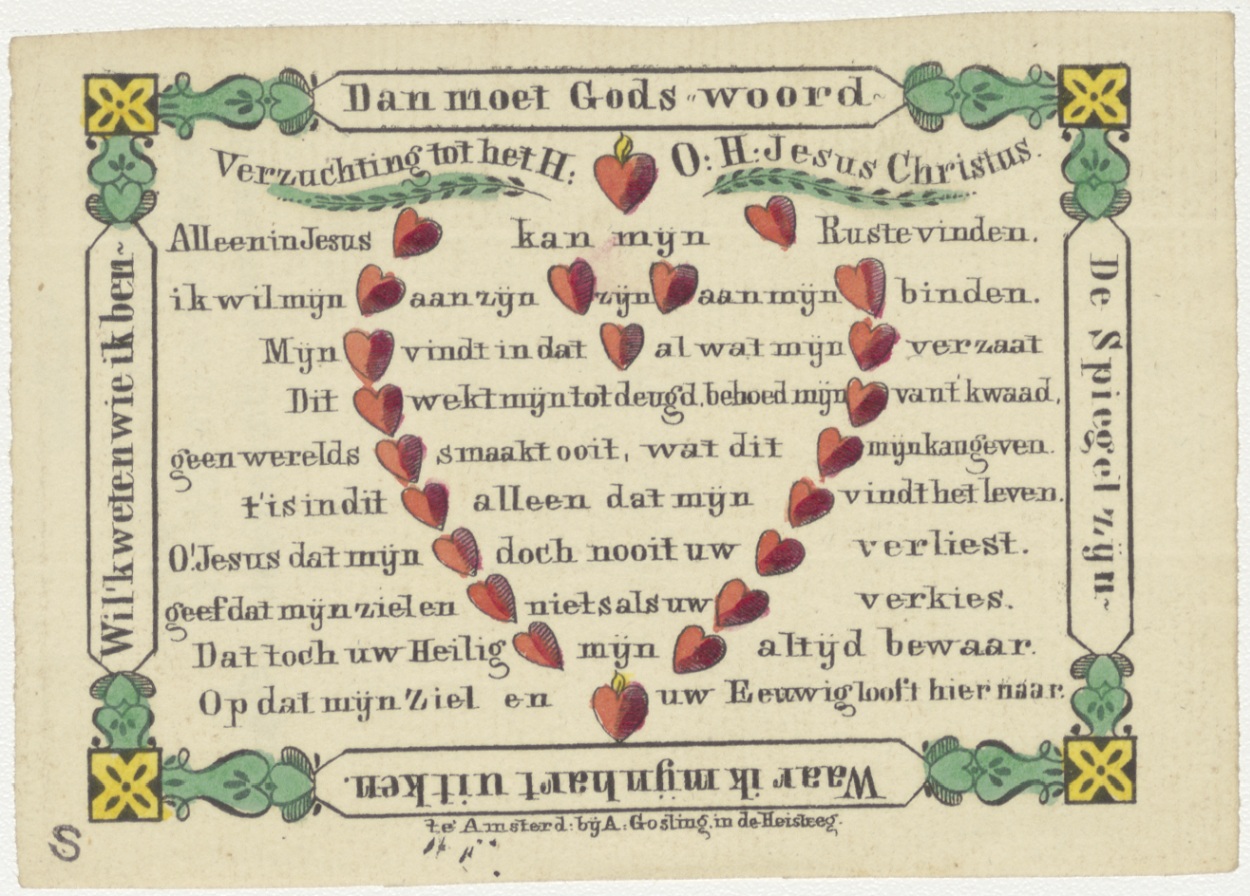 Dan moet Gods woord
De Spiegel zÿn
Waar ik mÿn hart uit ken.
Wil'k weten wie ik ben
Verzuchting tot het H: O: H: Jesus Christus.
Alleen in Jesus kan mÿn Ruste vinden.
ik wil mÿn aan zÿn zÿn aan mÿn binden.
Mÿn vindt in dat al wat mÿn verzaat
Dit wekt mÿn tot deugd, behoed mÿn van t'kwaad,
geen werelds smaakt ooit, wat dit mÿn kan geven.
t'is in dit alleen dat mÿn vindt het leven.
O! Jesus dat mÿn doch nooit uw verliest.
geef dat mÿn ziel en niets als uw verkies.
Dat toch uw Heilig mÿn altÿd bewaar.
Op dat mÿn Ziel en uw Eeuwig looft hier naar.
te Amsterd: bÿ A: Gosling, in de Heisteeg.
S